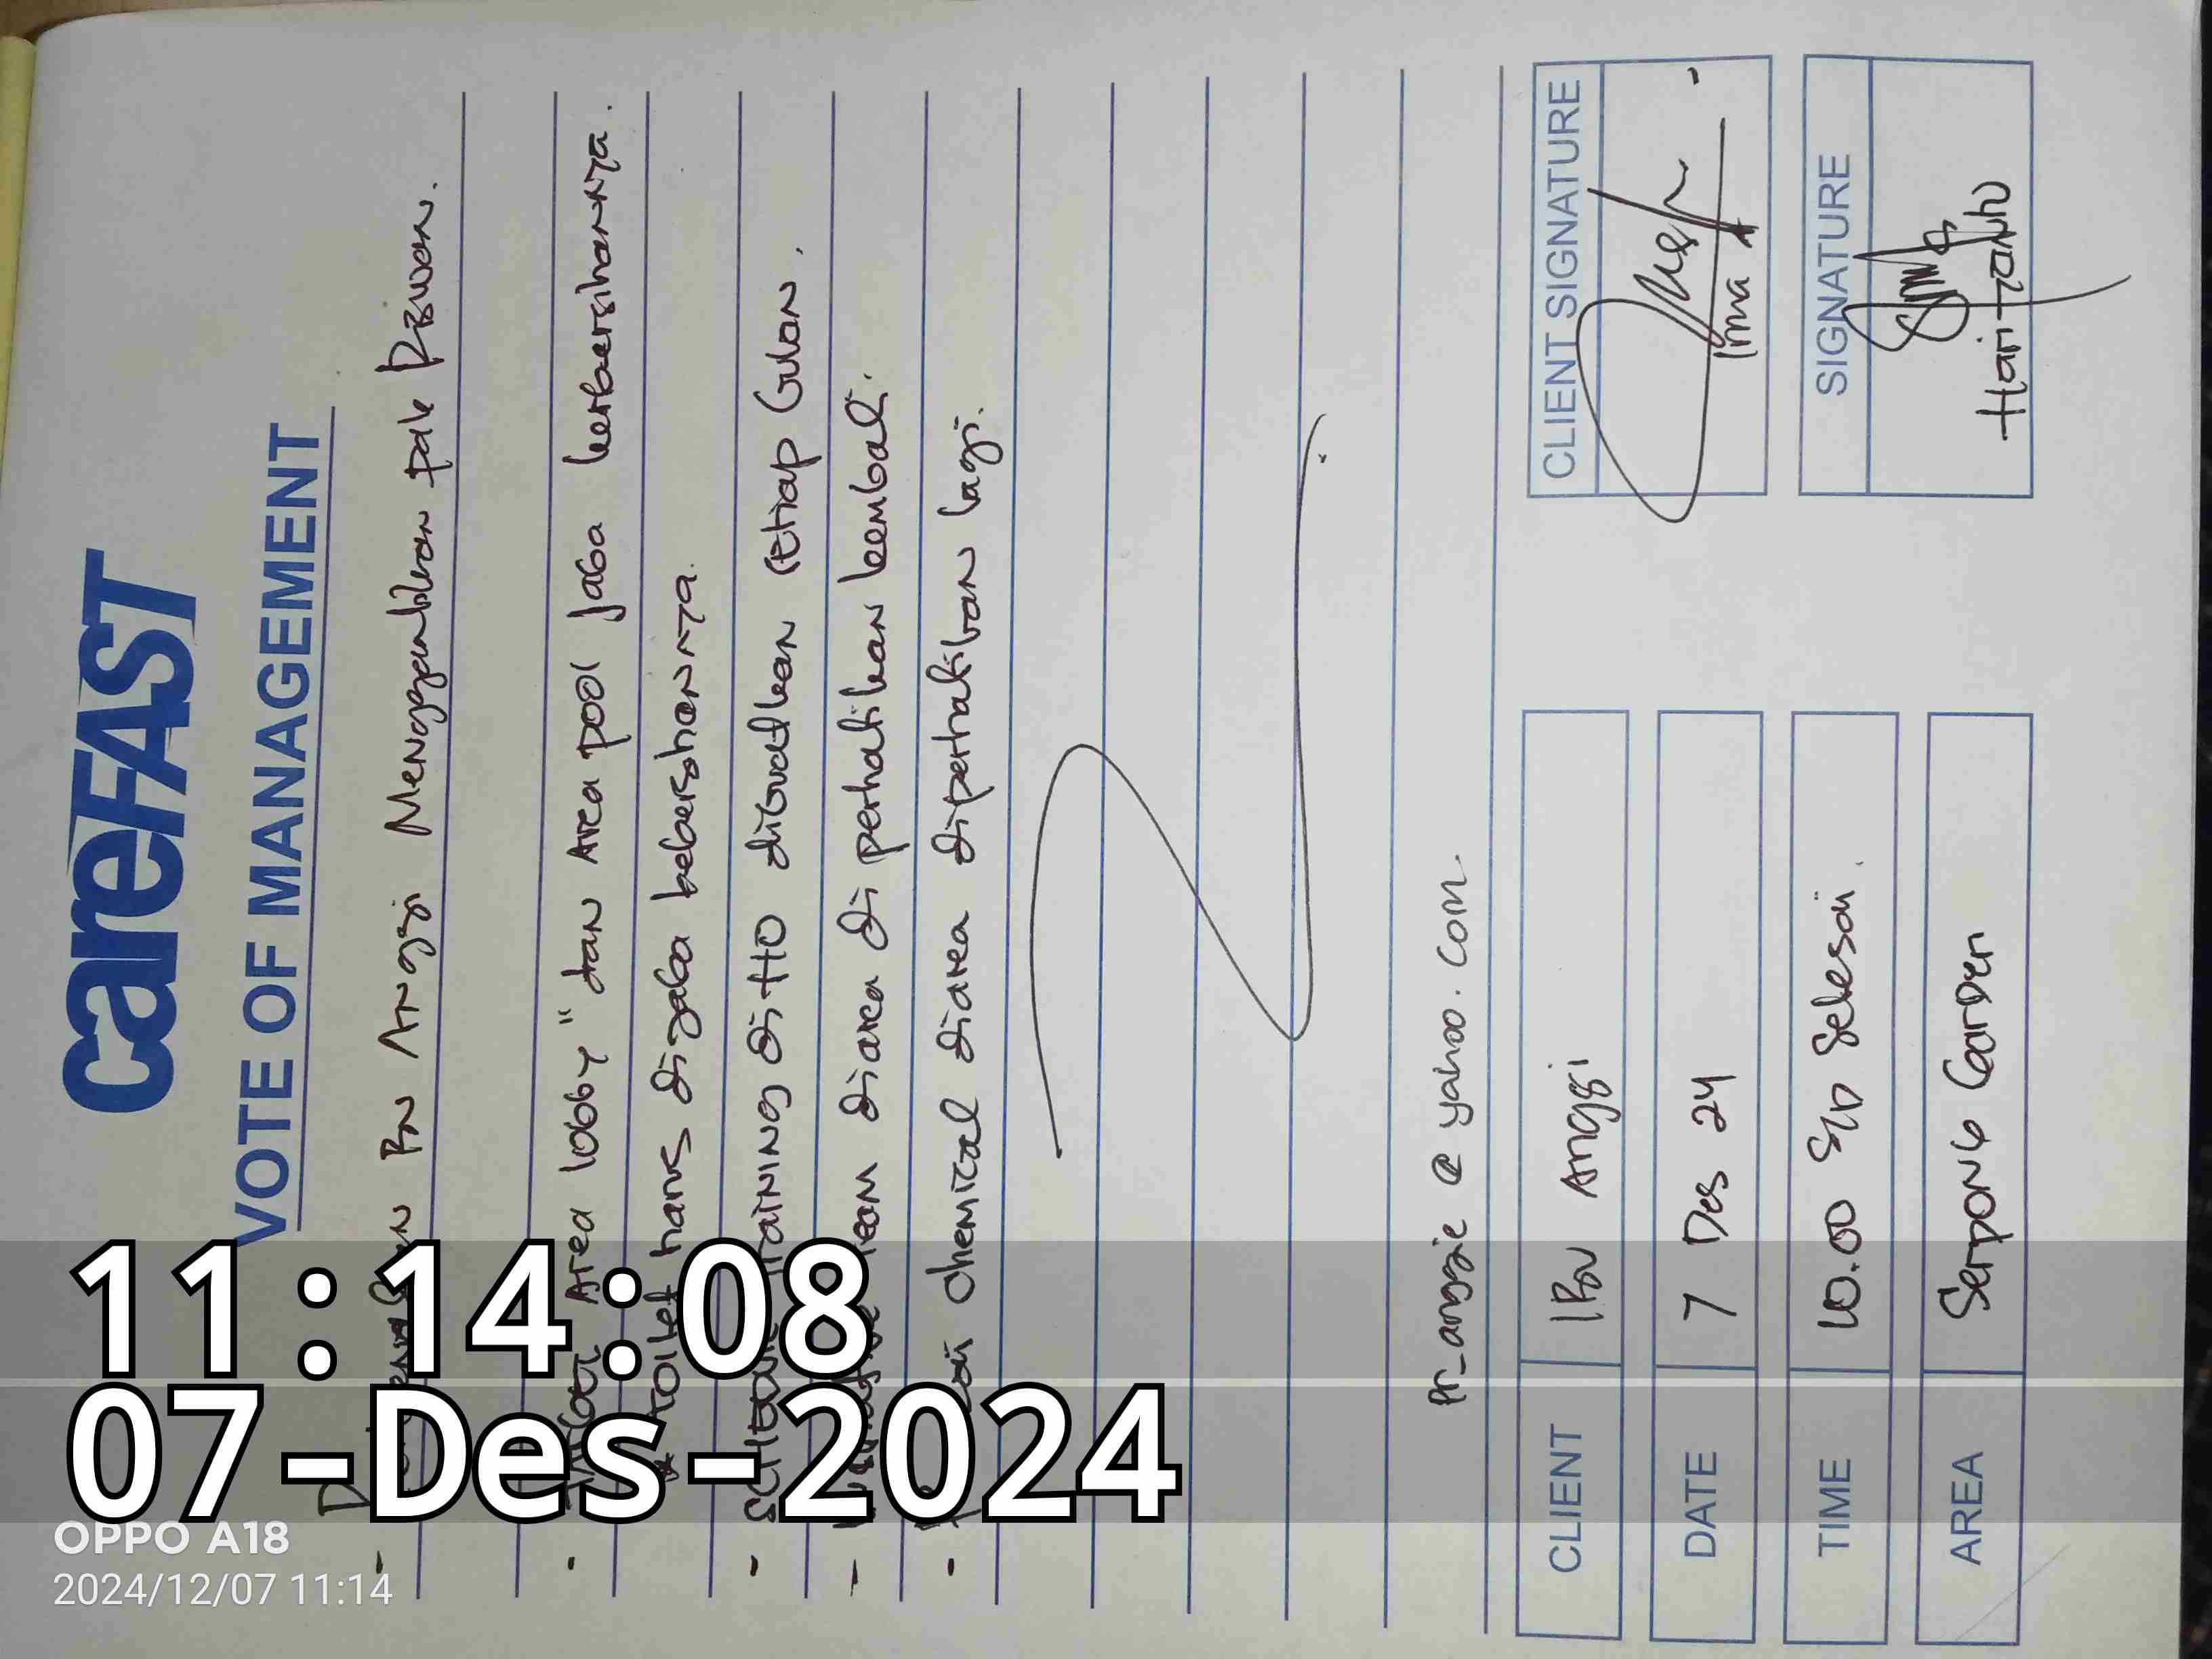 careFAST
VOTE OF MANAGEMENT
- Bu Anggi Menggantikan pak Riswan.
- Area lobby " dan Area pool jaga kerbersihannya.
* toilet harus dijaga kebersihannya.
- SCHEDULE Training di HO dibuatkan setiap bulan.
- team diarea di perhatikan kembali.
- chemical diarea diperhatikan lagi.
pr_anggie @ yahoo.com.
CLIENT IBU Anggi
DATE 7 Des 24
TIME 10.00 S/D Selesai.
AREA Serpong Garden
CLIENT SIGNATURE
Irma
SIGNATURE
Hariyanto
11:14:08
07-Des-2024
OPPO A18
2024/12/07 11:14